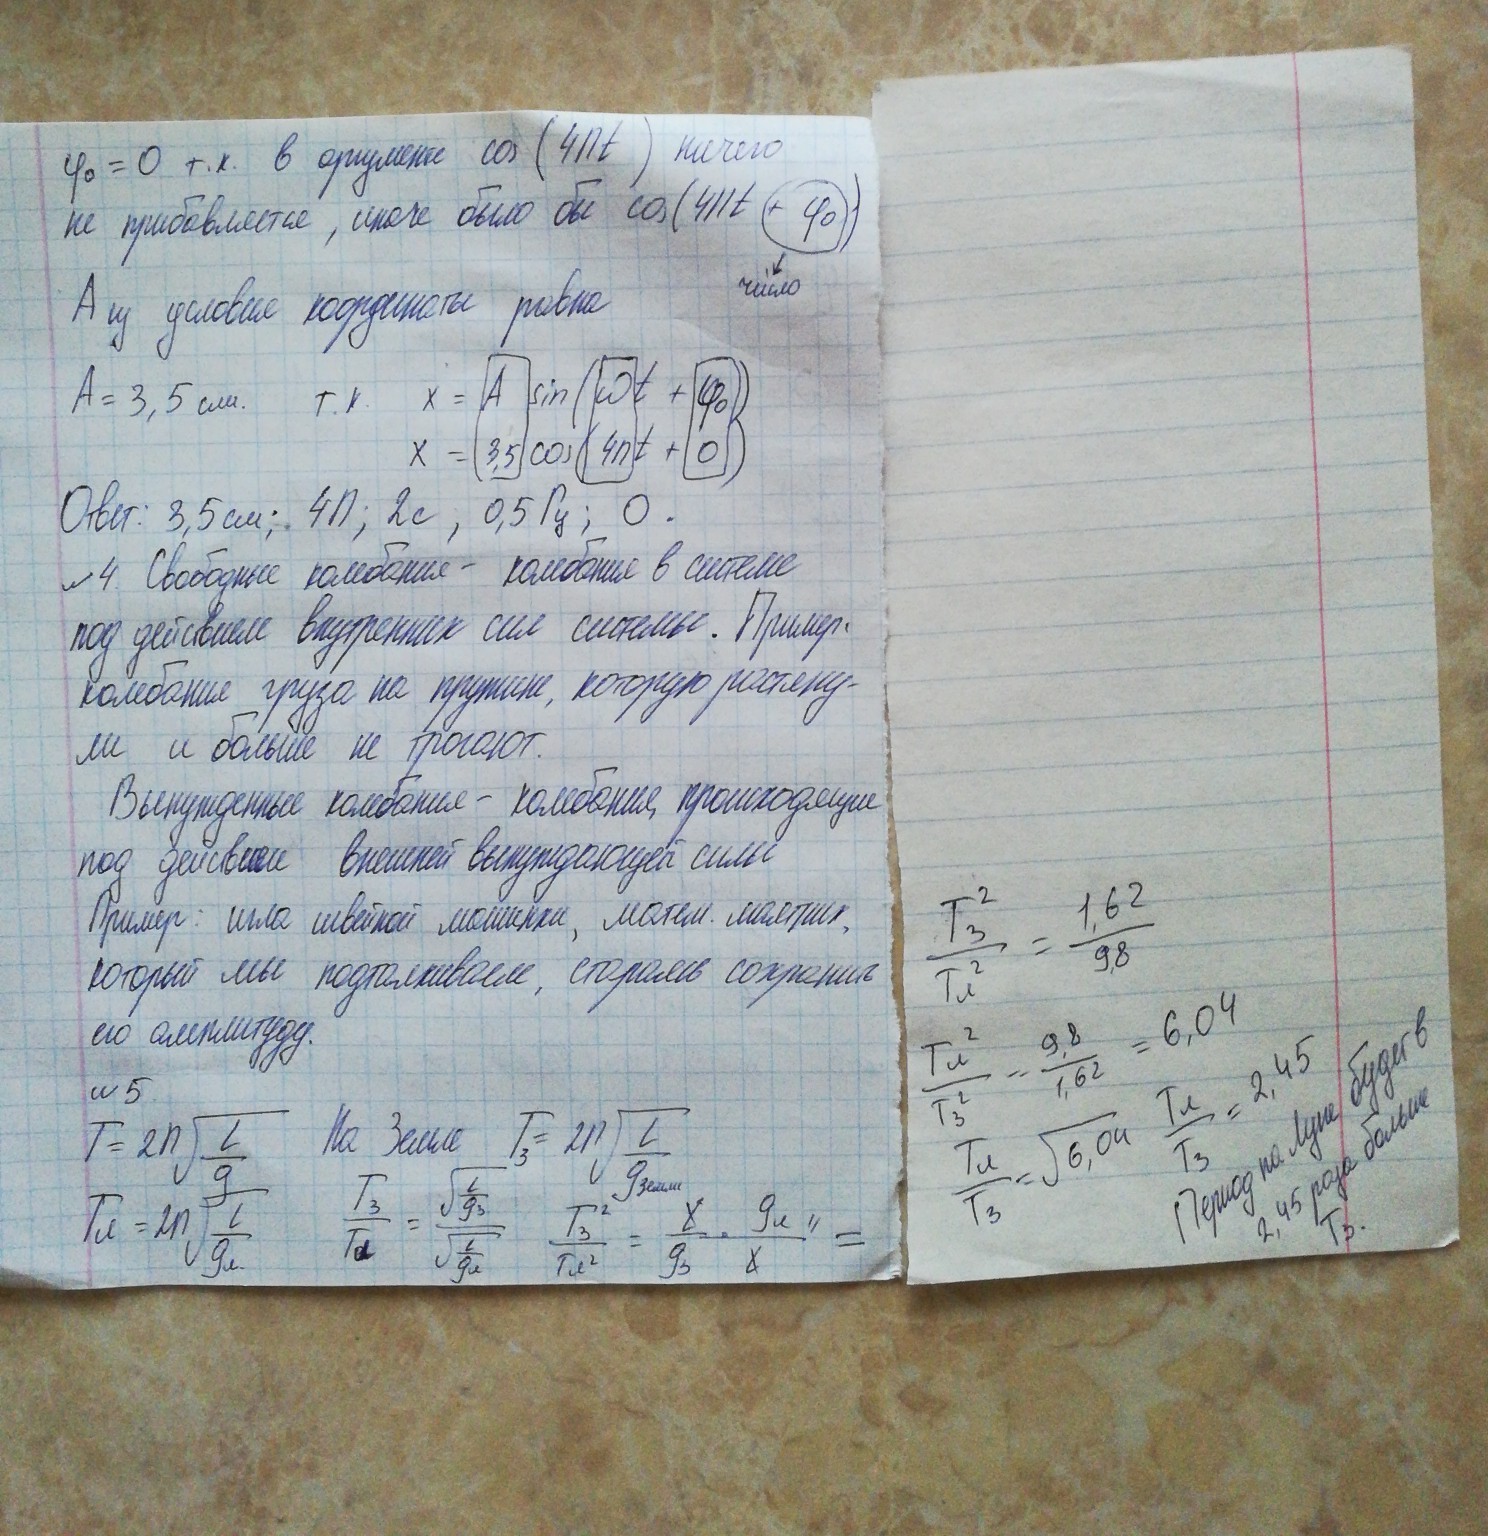 φ₀ = 0 т.к. в аргументе cos (4Пt) ничего
не прибавляется, иначе было бы cos(4Пt + φ₀)
число
А из условия координаты равна
А = 3,5 см. т.к. x = A sin(ωt + φ₀)
x = 3,5 cos(4Пt + 0)
Ответ: 3,5 см; 4П; 2с, 0,5 Гц; 0.
№4. Свободные колебания - колебания в системе
под действием внутренних сил системы. Пример:
колебания груза на пружине, которую растяну-
ли и больше не трогают.
Вынужденные колебания - колебания, происходящие
под действием внешней вынуждающей силы
Пример: игла швейной машинки, матем. маятник,
который мы подталкиваем, стараясь сохранить
его амплитуду.
№5
T = 2П√(L/g) На Земле T₃ = 2П√(L/g земли)
Tл = 2П√(L/gл.) T₃/Tл = √(L/g₃)/√(L/gл) T₃²/Tл² = L/g₃ · gл/L =
T₃²/Tл² = 1,62/9,8
Tл²/T₃² = 9,8/1,62 = 6,04
Tл/T₃ = √6,04 Tл/T₃ = 2,45
Период на Луне будет в
2,45 раза больше
T₃.